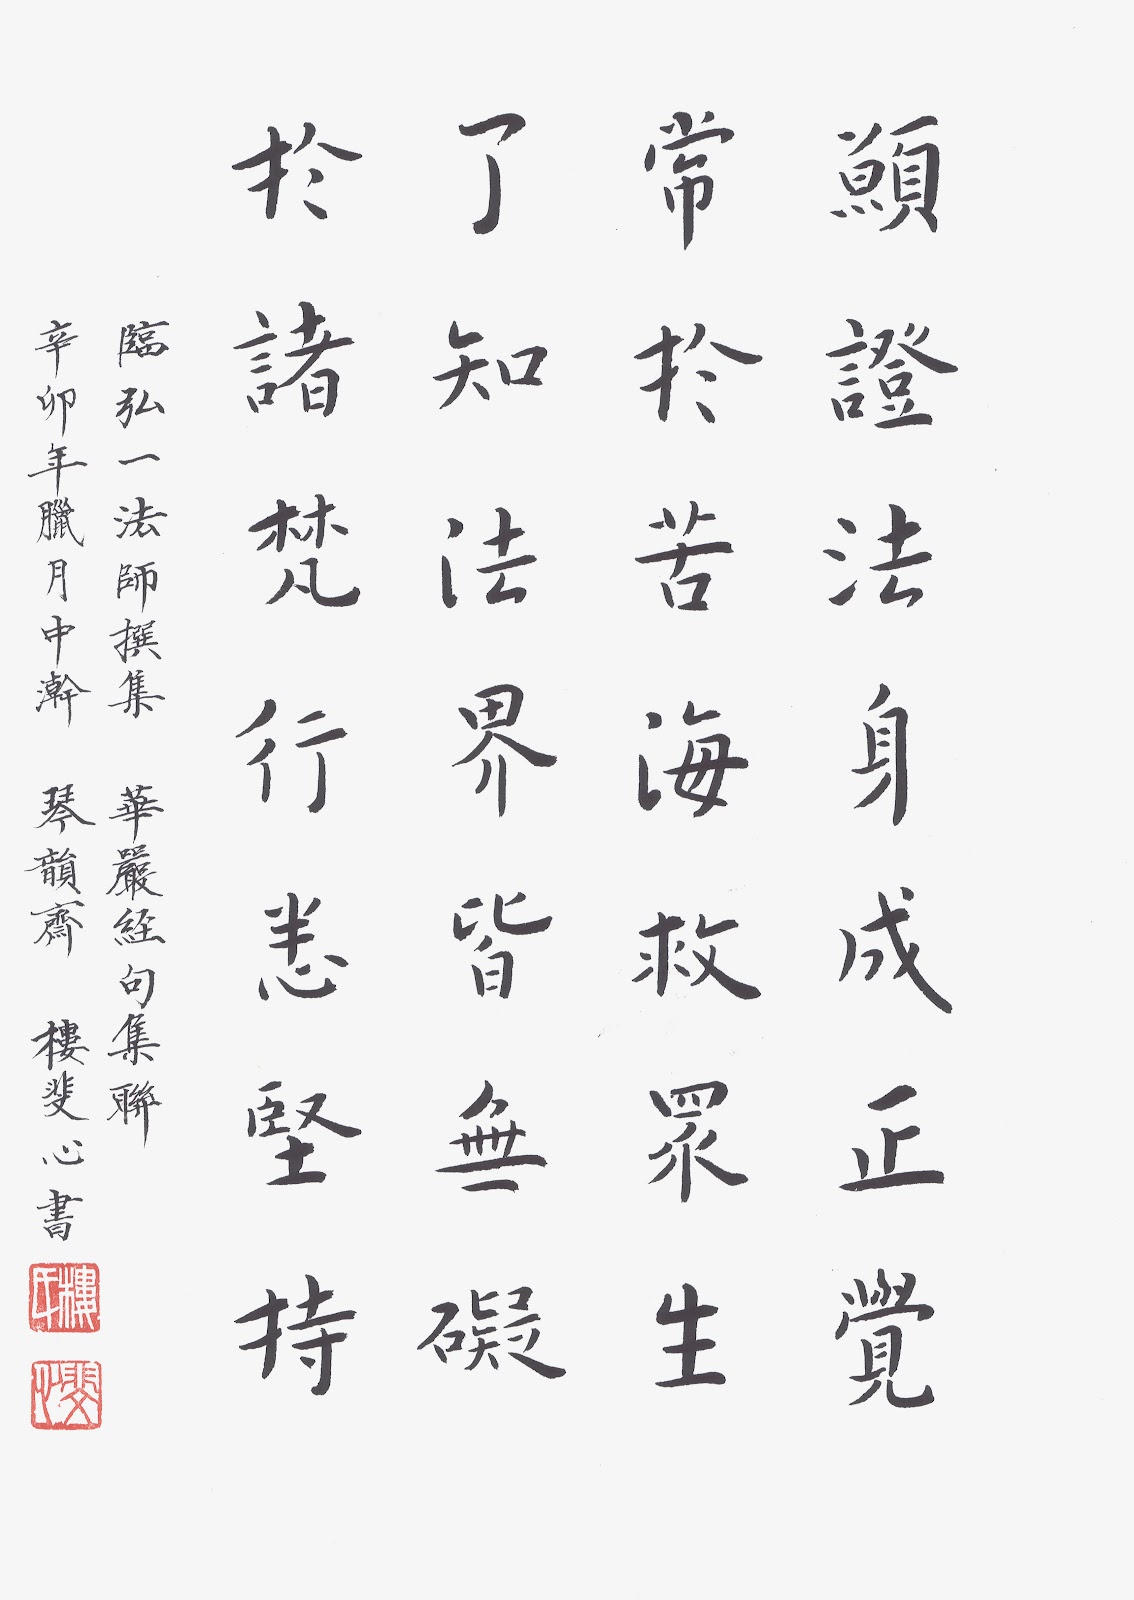 願證法身成正覺
常於苦海救眾生
了知法界皆無礙
於諸梵行悉堅持
臨弘一法師撰集 華嚴經句集聯
辛卯年臘月中澣 琴韻齋 樓斐心書
樓氏
斐心